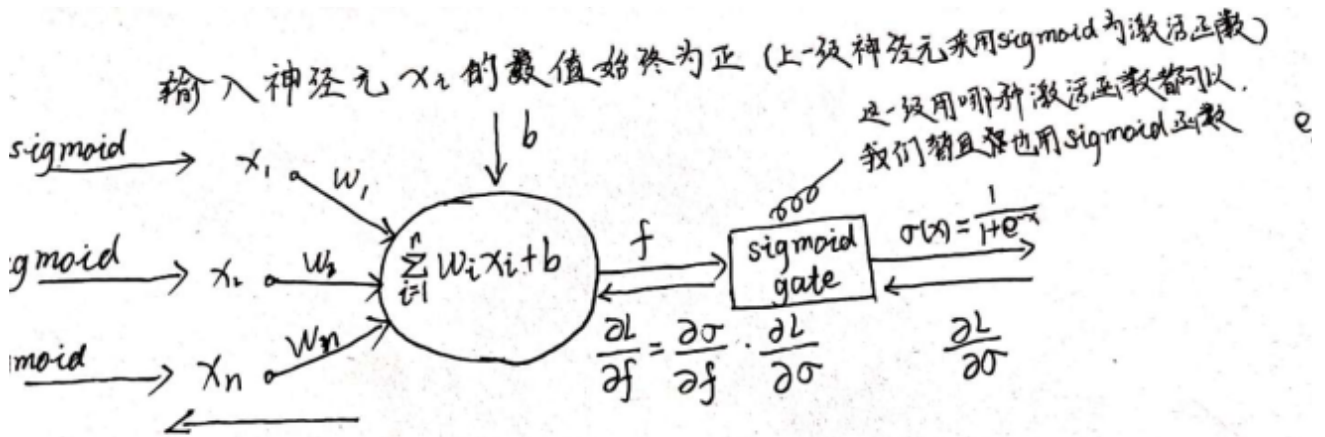 输入神经元 xᵢ 的数值始终为正 (上一级神经元采用sigmoid为激活函数)
这一级用哪种激活函数都可以.
我们暂且也用sigmoid函数
e
b
sigmoid
x₁
w₁
gmoid
x₂
w₂
moid
xₙ
wₙ
∑ᵢ₌₁ⁿ wᵢxᵢ+b
f
sigmoid
gate
σ(x)=1/(1+e⁻ˣ)
∂L/∂f = ∂σ/∂f · ∂L/∂σ
∂L/∂σ